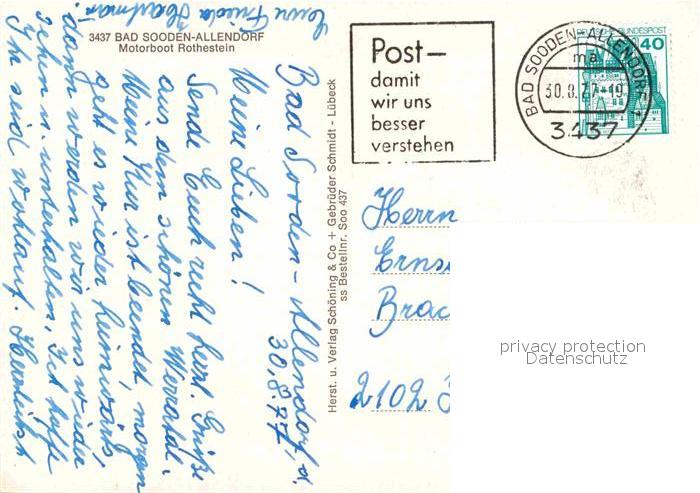 3437 BAD SOODEN-ALLENDORF
Motorboot Rothestein
Bad Sooden-Allendorf, d.
30.8.77,
Meine Lieben!
Sende Euch recht herzl. Grüße
aus dem schönen Werratal.
Meine Kur ist beendet, morgen
geht es wieder heimwärts,
dann werden wir uns wieder
sehen u. unterhalten, Ich hoffe
Ihr seid wohlauf. Herzlichst
Eure Frieda
Herst. u. Verlag Schöning & Co + Gebrüder Schmidt - Lübeck
ss Bestellnr. Soo 437
Post–
damit
wir uns
besser
verstehen
BAD SOODEN-ALLENDORF
ma
30.8.77-19
3437
DEUTSCHE BUNDESPOST
40
Herrn
Erns
Brac
2102
privacy protection
Datenschutz